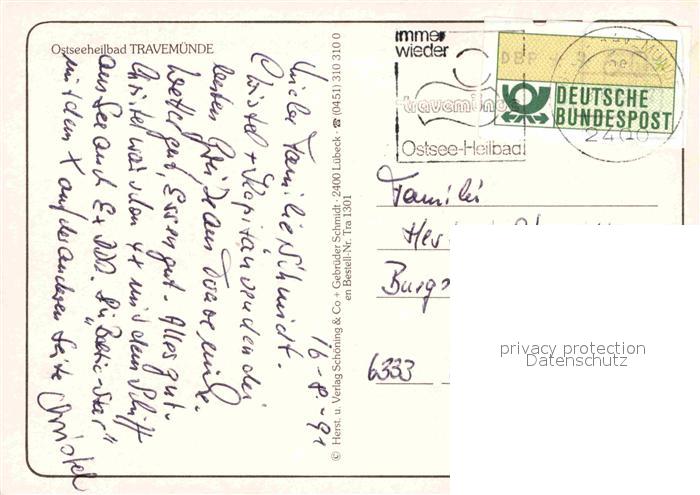 Ostseeheilbad TRAVEMÜNDE
16-8-91
Familie Schmidt.
Christel + Kapitän senden die
besten Grüße aus Travemünde.
Wetter gut, Essen gut. Alles gut.
Christel war schon 4x mit dem Schiff
auf See auch "Baltic-Star"
mit dem X auf der anderen Seite Christel
© Herst. u. Verlag Schöning & Co + Gebrüder Schmidt · 2400 Lübeck · ☎ (0451) 310 310 0
en Bestell-Nr. Tra 1301
immer
wieder
travemünde
Ostsee-Heilbad
DBP
DEUTSCHE
BUNDESPOST
2400
Familie
Burgs
6333
privacy protection
Datenschutz